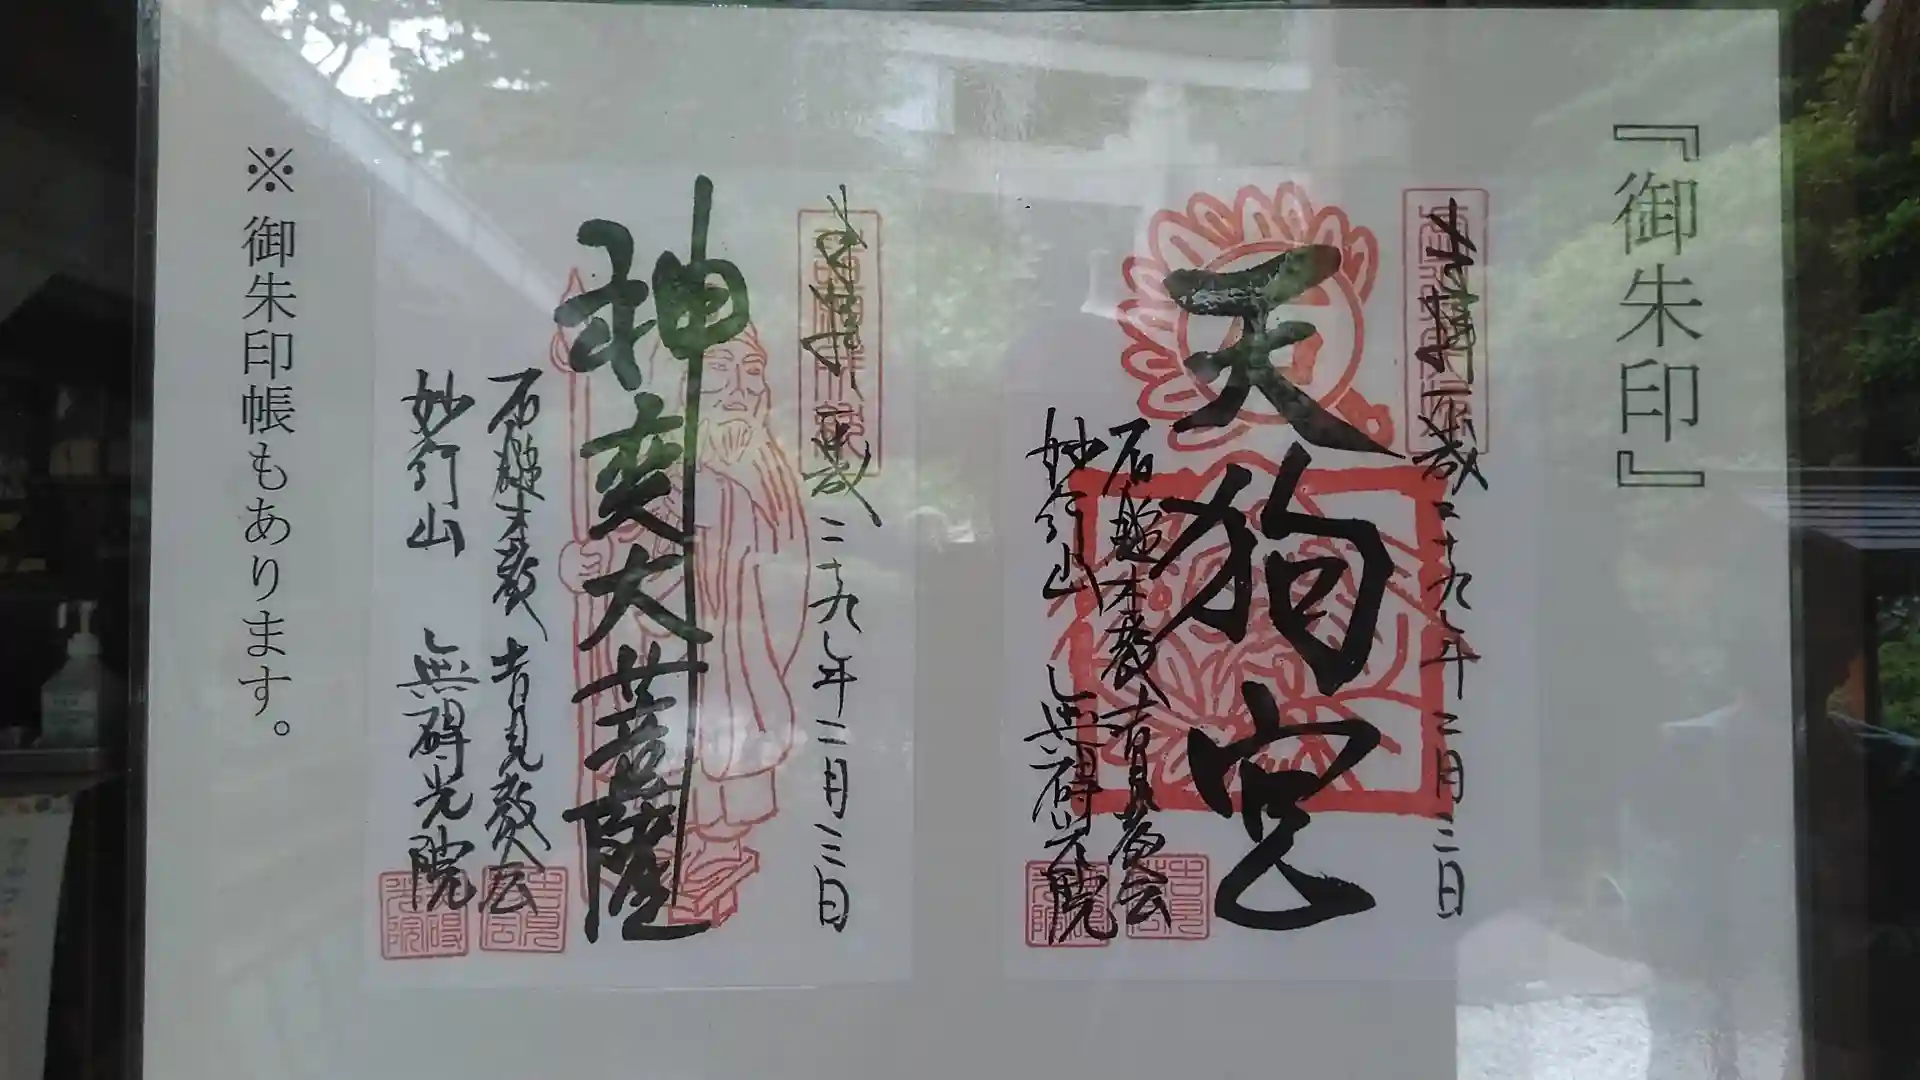 『御朱印』
奉拝
二十九年二月三日
天狗宮
石鎚本教 吉見教会
妙行山 無碍光院
奉拝
二十九年二月三日
神変大菩薩
石鎚本教 吉見教会
妙行山 無碍光院
※御朱印帳もあります。